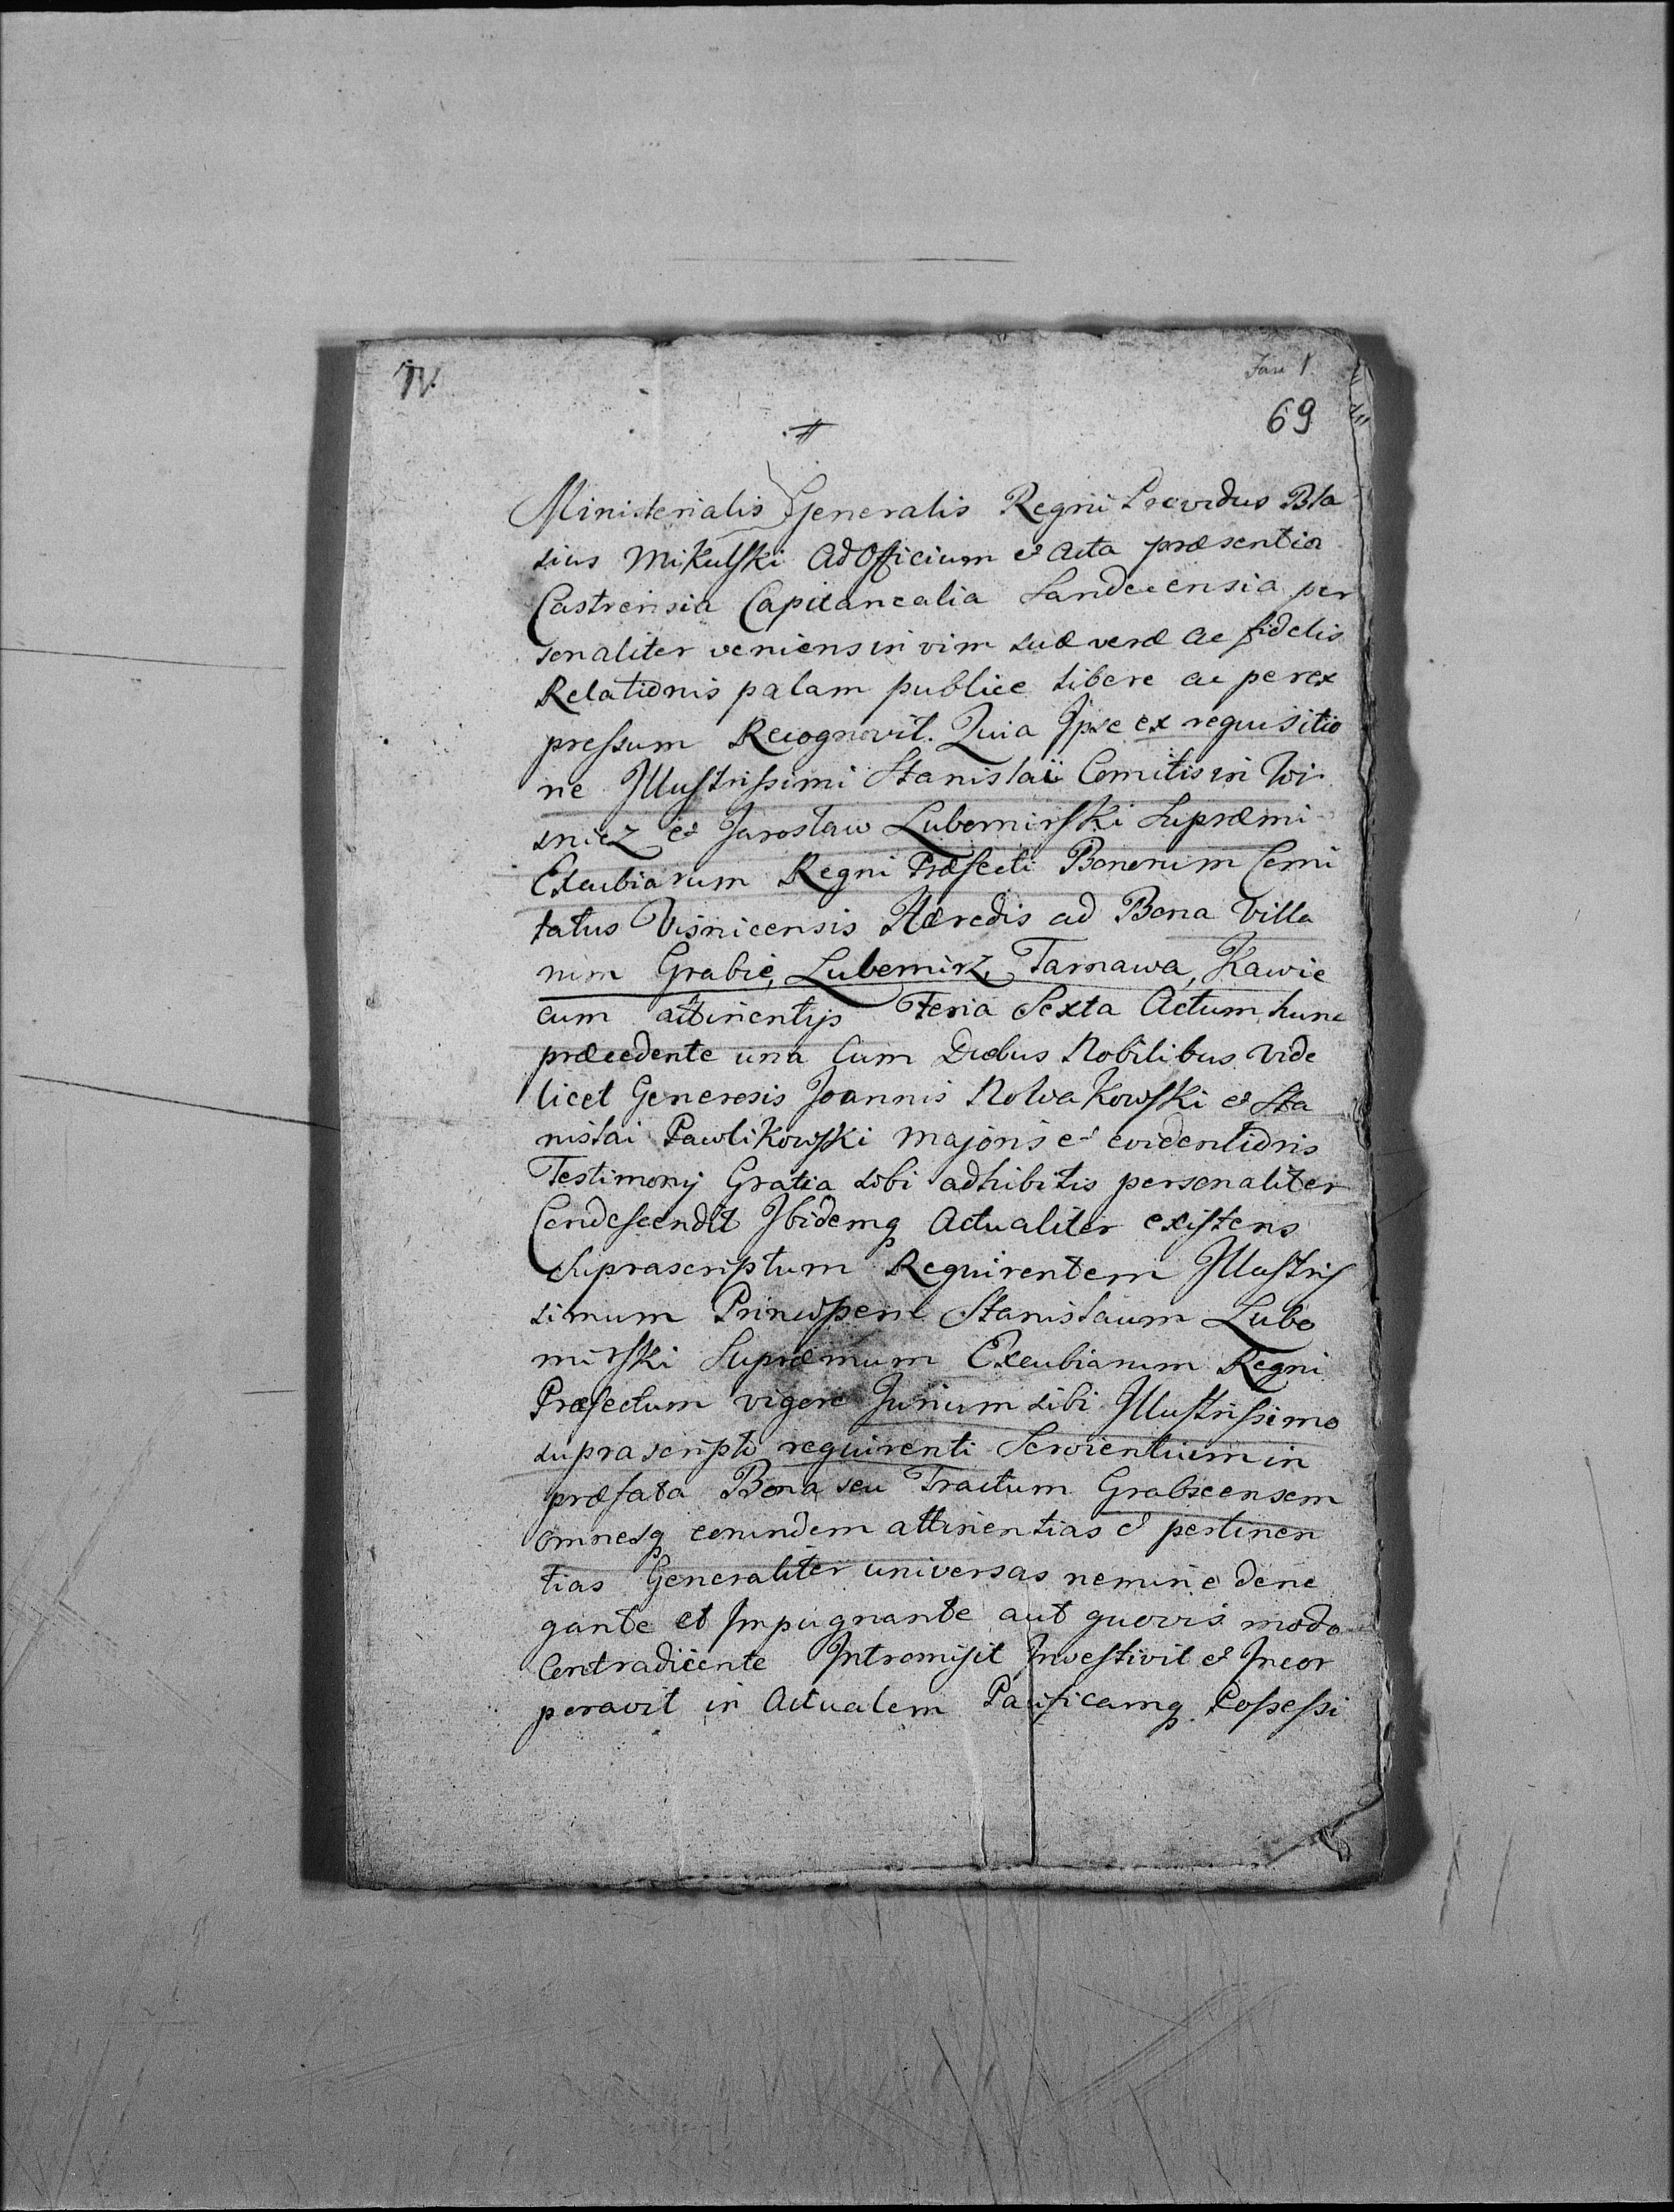 IV.
Fasc 1
69
Ministerialis Generalis Regni Providus Bla
sius Mikulski Ad Officium et Acta præsentia
Castrensia Capitanealia Sandecensia per
sonaliter veniens in vim suæ veræ ac fidelis
Relationis palam publice libere ac per ex
pressum Recognovit. Quia Ipse ex requisitio
ne Illustrissimi Stanislai Comitis in Wi
snicz et Jaroslaw Lubomirski Supræmi
Excubiarum Regni Præfecti Bonorum Comi
tatus Visnicensis Hæredis ad Bona Villa
rum Grabie, Lubomirz, Tarnawa, Kawie
cum attinentijs Feria Sexta Actum hunc
præcedente una Cum Duobus Nobilibus Vide
licet Generosis Joannis Nowakowski et Sta
nislai Pawlikowski majoris et evidentioris
Testimonij Gratia sibi adhibitis personaliter
Condescendit Ibidemq Actualiter existens
Suprascriptum Requirentem Illustris
simum Principem Stanislaum Lubo
mirski Supræmum Excubiarum Regni
Præfectum vigore Jurium sibi Illustrissimo
suprascripto requirenti Servientium in
præfata Bona seu Tractum Grabscensem
omnesq eorundem attinentias et pertinen
tias Generaliter universas nemine dene
gante et Impugnante aut quovis modo
Contradicente Intromisit Investivit et Incor
poravit in Actualem Pacificamq Possessi